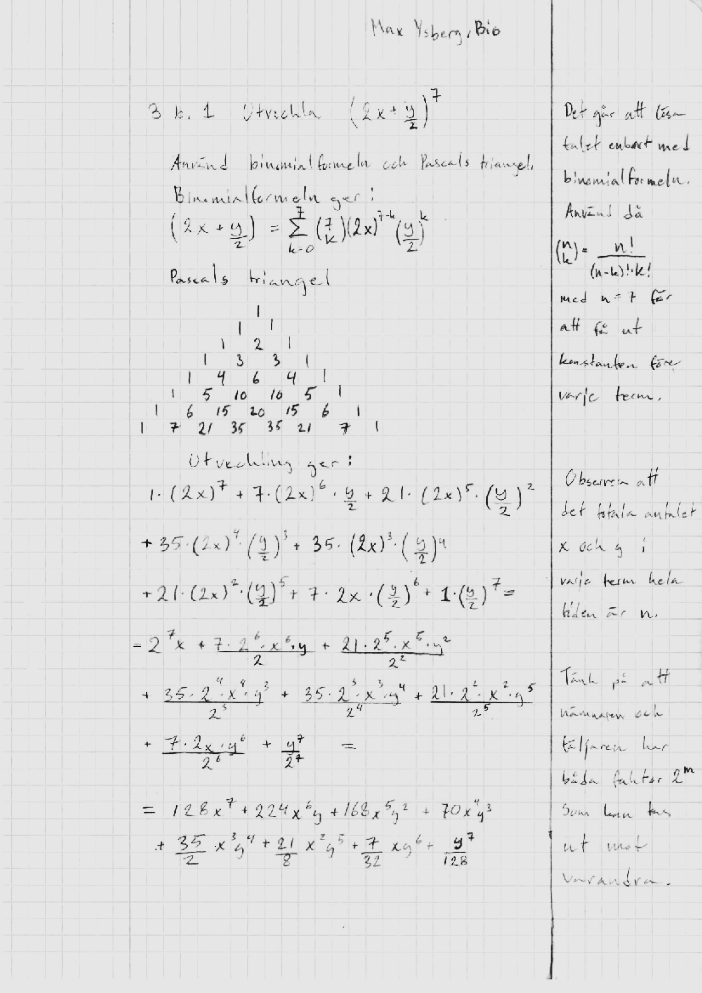 Max Ysberg, Bio
3 b. 1 Utveckla (2x + y/2)^7
Använd binomialformeln och Pascals triangel.
Binomialformeln ger:
(2x + y/2) = Σ_{k=0}^{7} (7 k)(2x)^{7-k} (y/2)^k
Pascals triangel
1
1 1
1 2 1
1 3 3 1
1 4 6 4 1
1 5 10 10 5 1
1 6 15 20 15 6 1
1 7 21 35 35 21 7 1
Utveckling ger:
1·(2x)^7 + 7·(2x)^6 · y/2 + 21·(2x)^5·(y/2)^2
+ 35·(2x)^4·(y/2)^3 + 35·(2x)^3·(y/2)^4
+ 21·(2x)^2·(y/2)^5 + 7·2x·(y/2)^6 + 1·(y/2)^7 =
= 2^7x + 7·2^6·x^6·y/2 + 21·2^5·x^5·y^2/2^2
+ 35·2^4·x^4·y^3/2^3 + 35·2^3·x^3·y^4/2^4 + 21·2^2·x^2·y^5/2^5
+ 7·2x·y^6/2^6 + y^7/2^7 =
= 128x^7 + 224x^6y + 168x^5y^2 + 70x^4y^3
+ 35/2 x^3y^4 + 21/8 x^2y^5 + 7/32 xy^6 + y^7/128
Det går att lösa
talet enbart med
binomialformeln.
Använd då
(n k) = n!/(n-k)!·k!
med n = 7 för
att få ut
konstanten före
varje term.
Observera att
det totala antalet
x och y i
varje term hela
tiden är n.
Tänk på att
nämnaren och
täljaren har
båda faktor 2^m
som kan tas
ut mot
varandra.